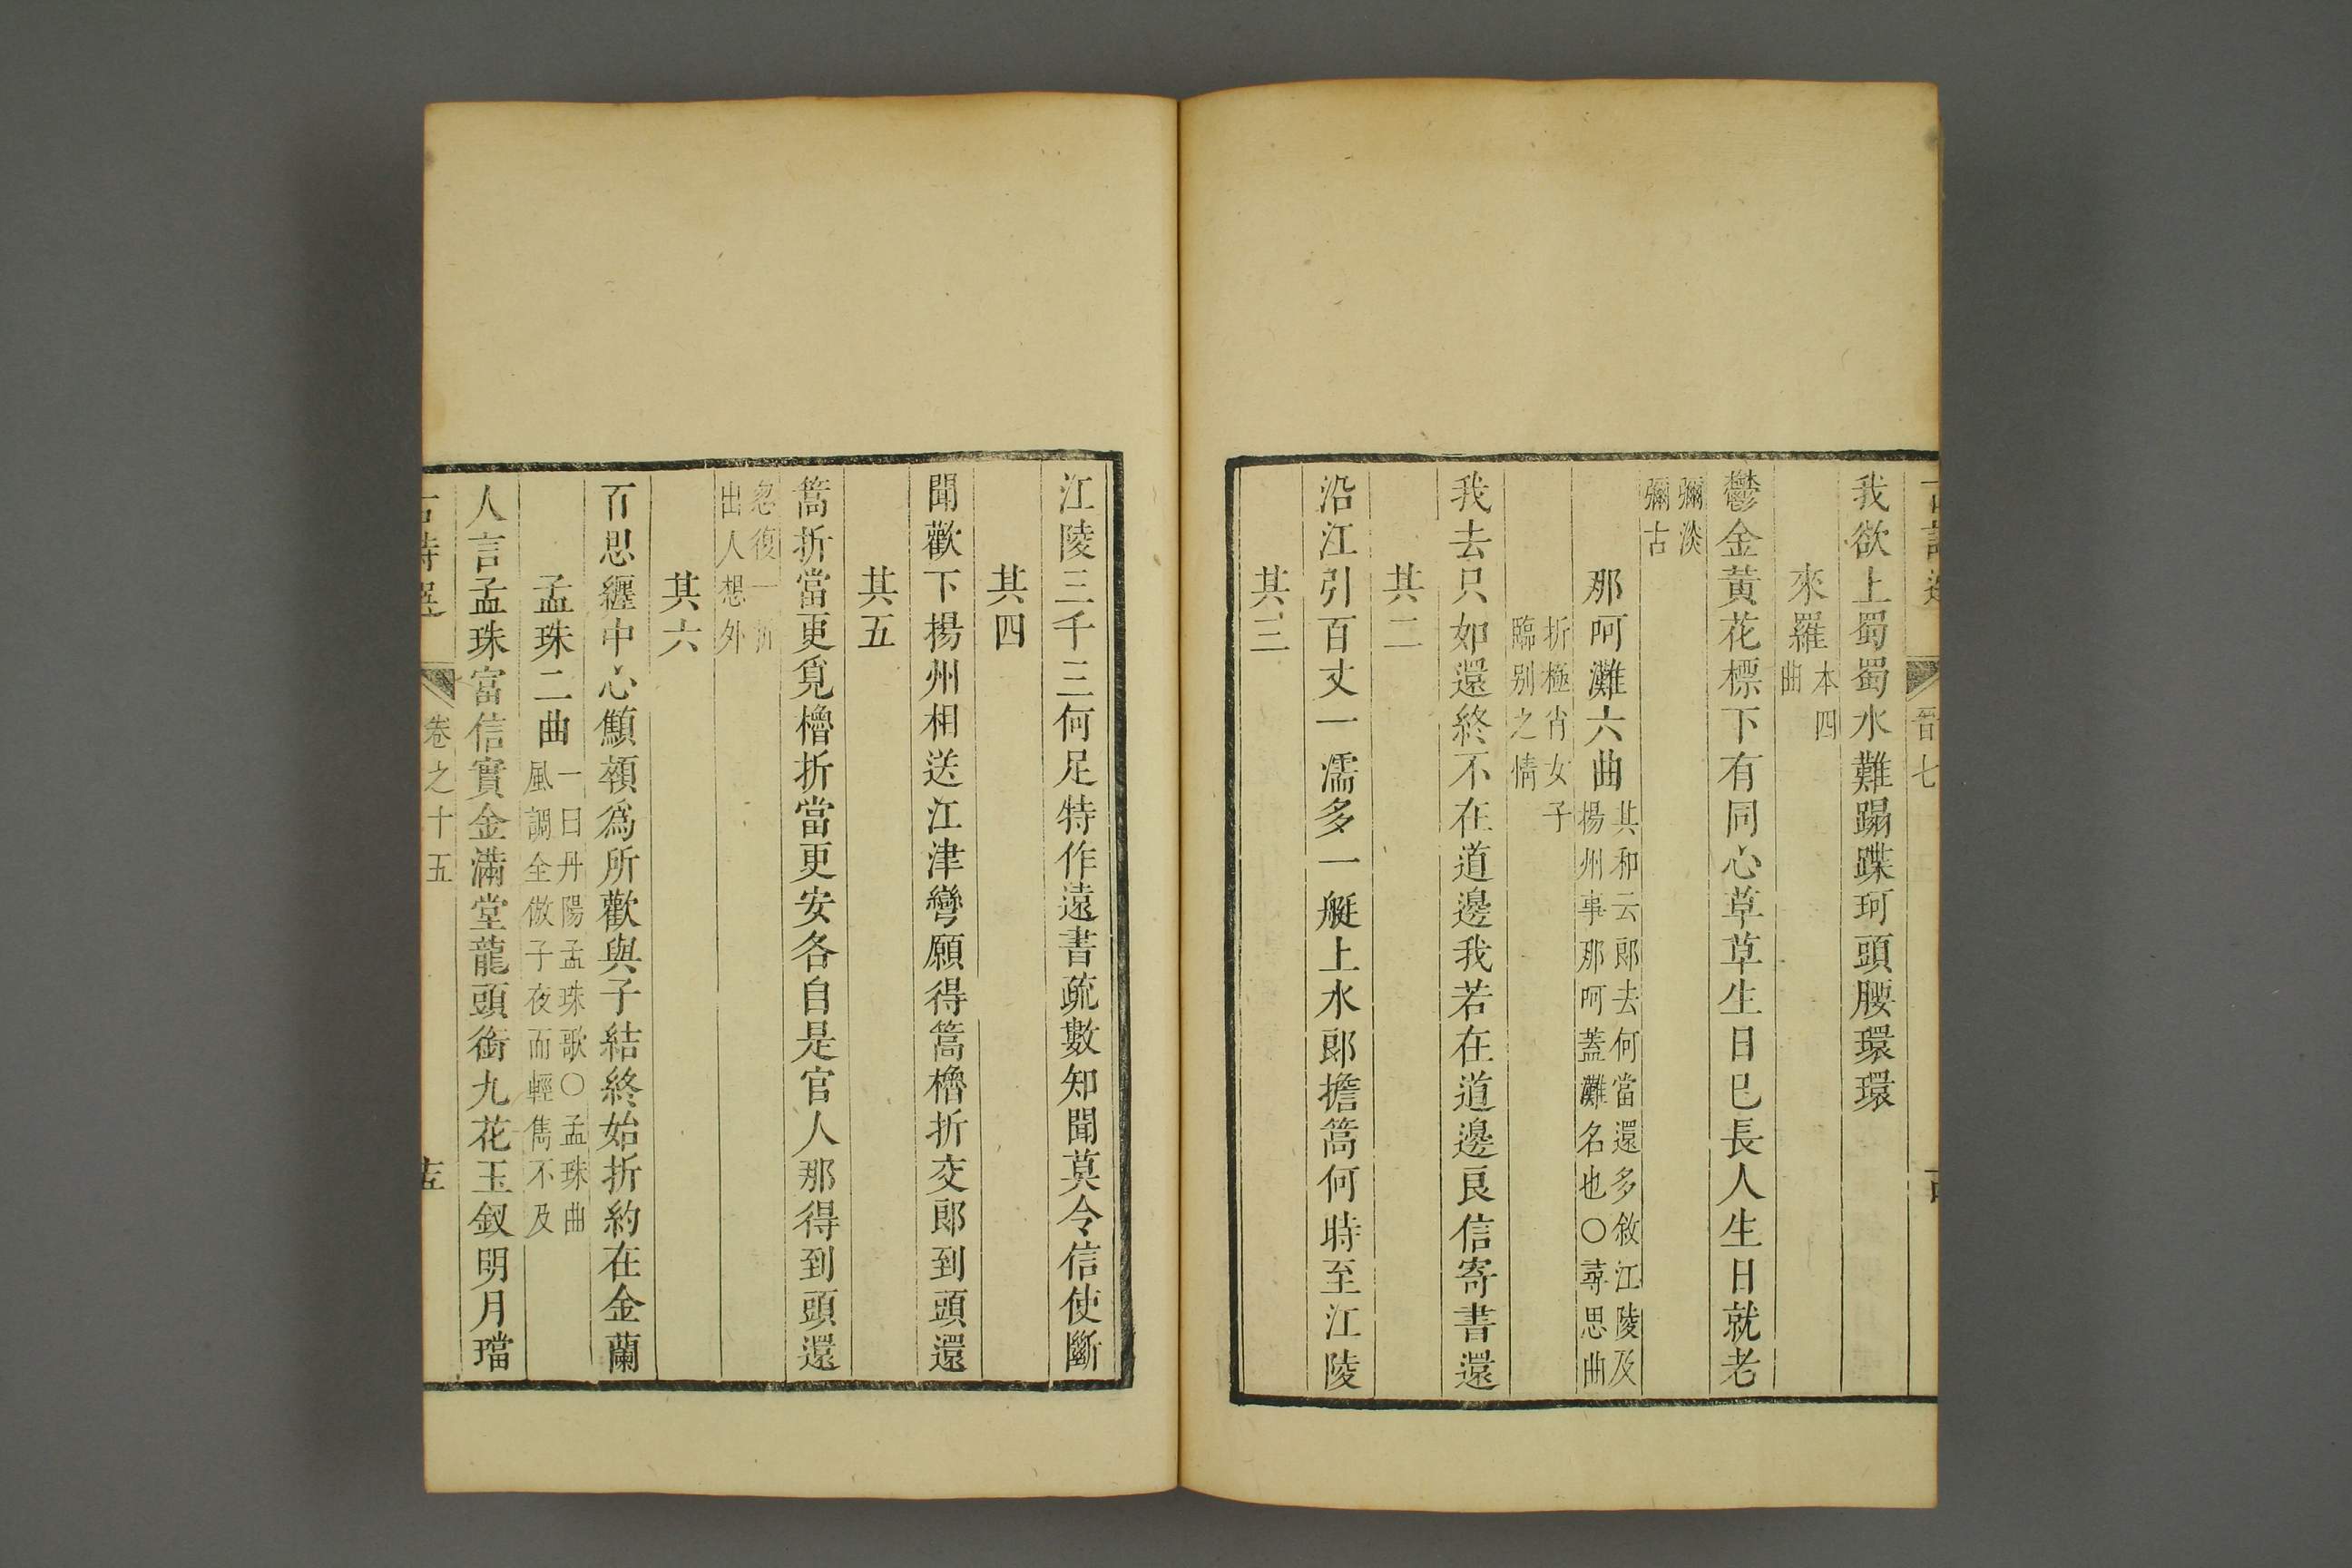 晉七
我欲上蜀蜀水難蹋蹀珂頭腰環環
來羅本四
曲
鬱金黃花標下有同心草草生日已長人生日就老
彌淡
彌古
那呵灘六曲其和云郎去何當還多敘江陵及
揚州事那呵蓋灘名也○尋思曲
折極肖女子
臨別之情
我去只如還終不在道邊我若在道邊良信寄書還
其二
沿江引百丈一濡多一艇上水郎擔篙何時至江陵
其三
江陵三千三何足特作遠書疏數知聞莫令信使斷
其四
聞歡下揚州相送江津彎願得篙櫓折交郎到頭還
其五
篙折當更覓櫓折當更安各自是官人那得到頭還
忽復一折
出人想外
其六
百思纏中心顦顇為所歡與子結終始折約在金蘭
孟珠二曲一曰丹陽孟珠歌○孟珠曲
風調全倣子夜而輕雋不及
人言孟珠富信實金滿堂龍頭銜九花玉釵明月璫
卷之十五